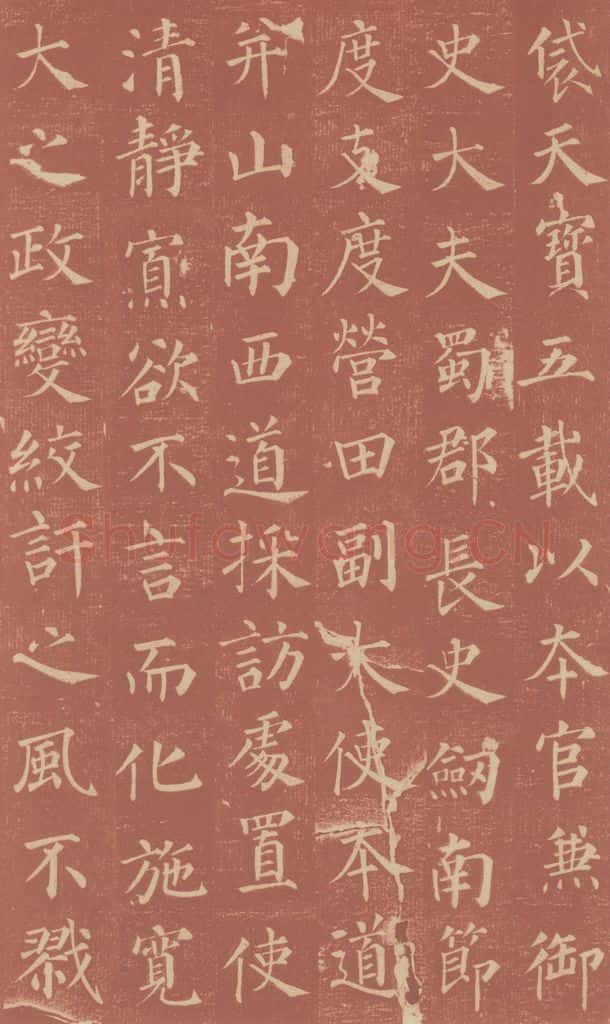 袋天寶五載以本官兼御
史大夫蜀郡長史劒南節
度支度營田副大使本道
并山南西道採訪處置使
清靜寡欲不言而化施寬
大之政變絞訐之風不戮
Shufawang.CN